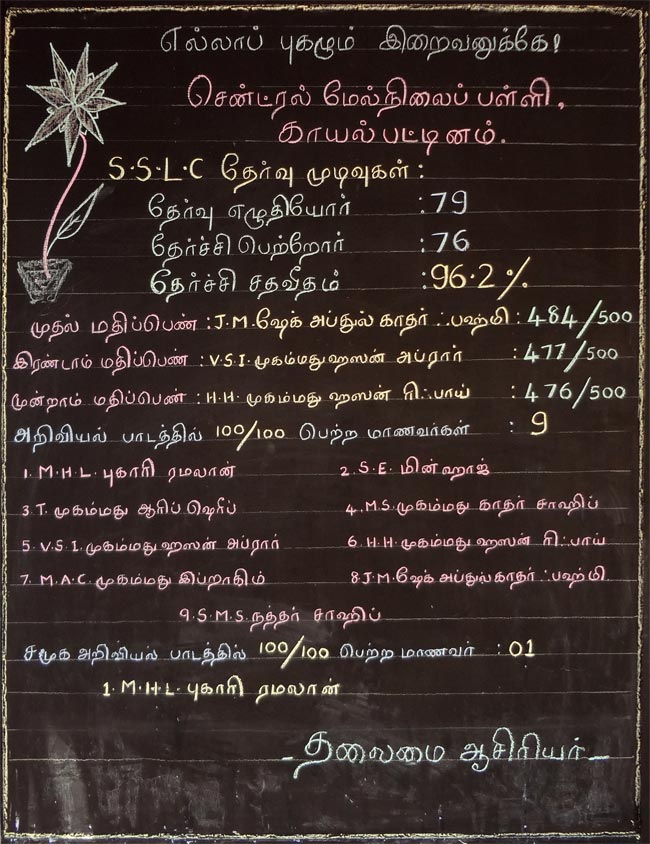 எல்லாப் புகழும் இறைவனுக்கே!
சென்ட்ரல் மேல்நிலைப் பள்ளி,
காயல்பட்டினம்.
S.S.L.C தேர்வு முடிவுகள் :
தேர்வு எழுதியோர் : 79
தேர்ச்சி பெற்றோர் : 76
தேர்ச்சி சதவீதம் : 96.2%
முதல் மதிப்பெண் : J.M.ஷேக் அப்துல் காதர் ஃபஹ்மி : 484/500
இரண்டாம் மதிப்பெண் : V.S.I.முகம்மது ஹஸன் அப்ரார் : 477/500
மூன்றாம் மதிப்பெண் : H.H. முகம்மது ஹஸன் ரிஃபாய் : 476/500
அறிவியல் பாடத்தில் 100/100 பெற்ற மாணவர்கள் : 9
1. M.H.L. புகாரி ரமலான் 2. S.E. மின்ஹாஜ்
3. T. முகம்மது ஆரிப் ஷெரீப் 4. M.S. முகம்மது காதர் சாஹிப்
5. V.S.I. முகம்மது ஹஸன் அப்ரார் 6. H.H. முகம்மது ஹஸன் ரிஃபாய்
7. M.A.C. முகம்மது இப்றாகிம் 8. J.M.ஷேக் அப்துல் காதர் ஃபஹ்மி
9. S.M.S. நத்தர் சாஹிப்
சமூக அறிவியல் பாடத்தில் 100/100 பெற்ற மாணவர் : 01
1. M.H.L. புகாரி ரமலான்
-தலைமை ஆசிரியர்-